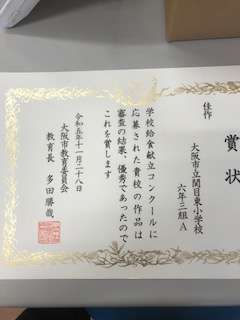 賞状
佳作
大阪市立関目東小学校
六年三組A
学校給食献立コンクールに
応募された貴校の作品は
審査の結果、優秀であったので
これを賞します
令和五年十一月二十八日
大阪市教育委員会
教育長 多田勝哉